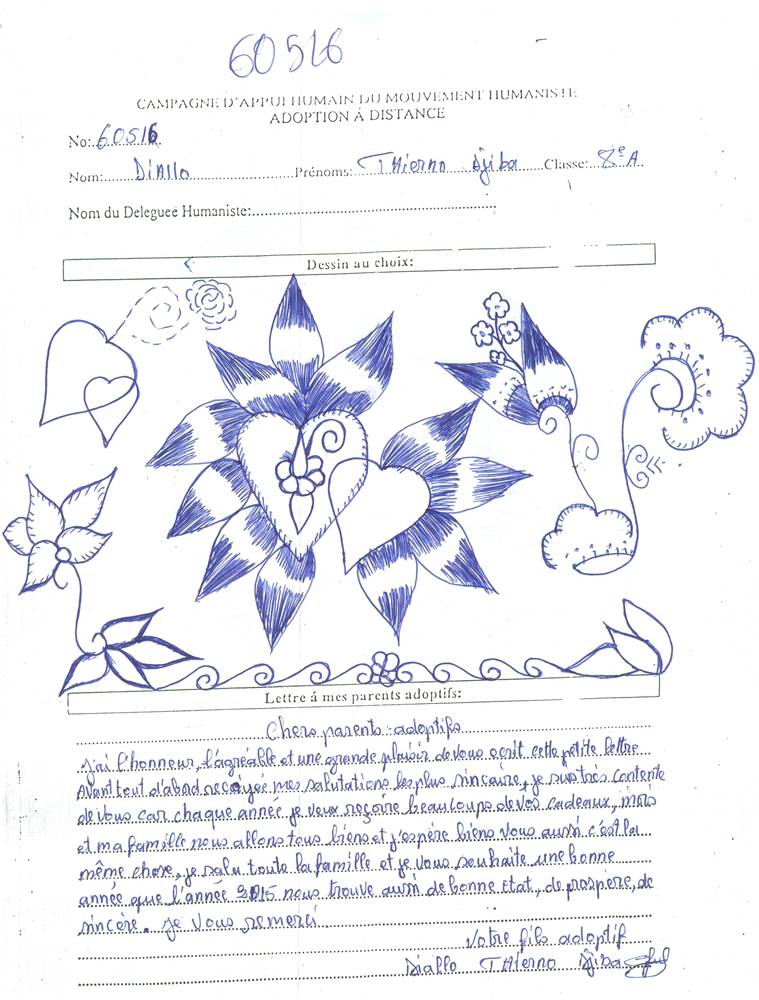 60516
CAMPAGNE D'APPUI HUMAIN DU MOUVEMENT HUMANISTE
ADOPTION Á DISTANCE
No:..60516.
Nom:......Diallo..................Prénoms:..THierno Djiba....Classe:..8e A..
Nom du Deleguee Humaniste:..........................................................
Dessin au choix:
Lettre á mes parents adoptifs:
Chers parents-adoptifs
J'ai l'honneur, l'agréable et une grande plaisir de vous ecrit cette petite lettre
Avant tout d'abad recoyée mes salutations les plus sincaire, je suis très contente
de vous car chaque année je veux reçoire beaucoups de vos cadeaux, mois
et ma famille nous allons tous biens et j'espère biens vous aussi c'est la
même chose, je salu toute la famille et je vous souhaite une bonne
année que l'année 2015 nous trouve aussi de bonne Etat, de prospère, de
sincère. je vous remerci
Votre fils adoptif
Diallo THierno Djiba